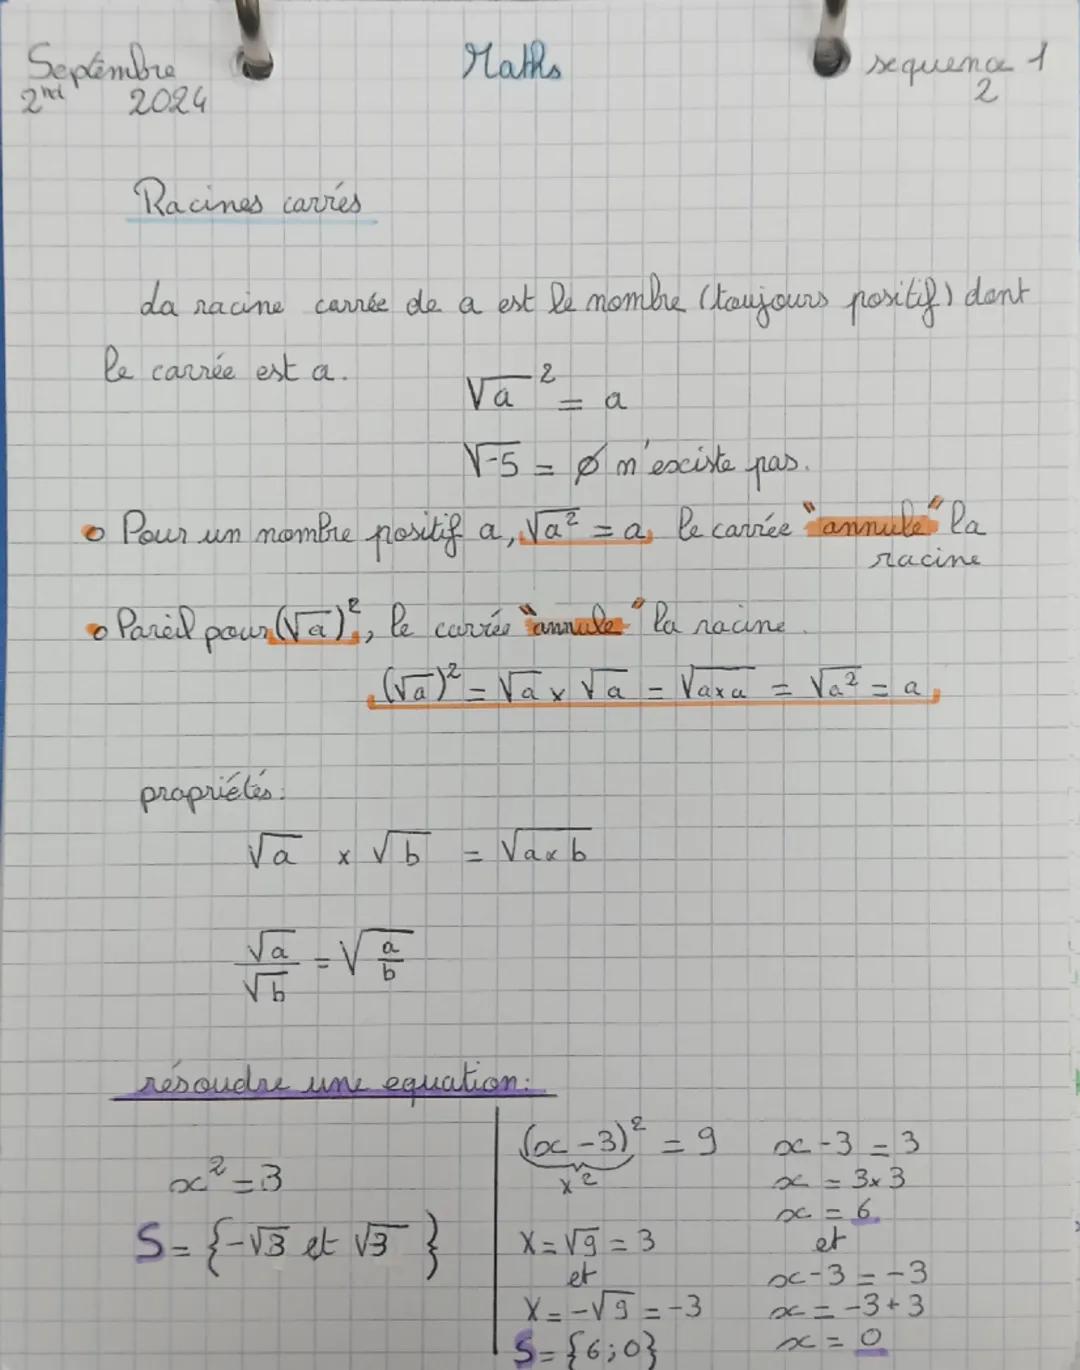 Septembre Maths sequence 1
2nd 2024 2
Racines carrés
La racine carrée de a est le nombre (toujours positif) dont
le carrée est a.
√a² = a
√-5 = ∅ n'existe pas.
o Pour un nombre positif a, √a² = a, le carrée "annule" la
racine
o Pareil pour (√a)², le carrée "annule" la racine.
(√a)² = √a × √a = √a×a = √a² = a
propriétés:
√a × √b = √a×b
√a/√b = √a/b
résoudre une equation:
x² = 3
S = {-√3 et √3}
(x-3)² = 9
X²
X = √9 = 3
et
X = -√9 = -3
S = {6;0}
x-3 = 3
x = 3×3
x = 6
et
x-3 = -3
x = -3+3
x = 0